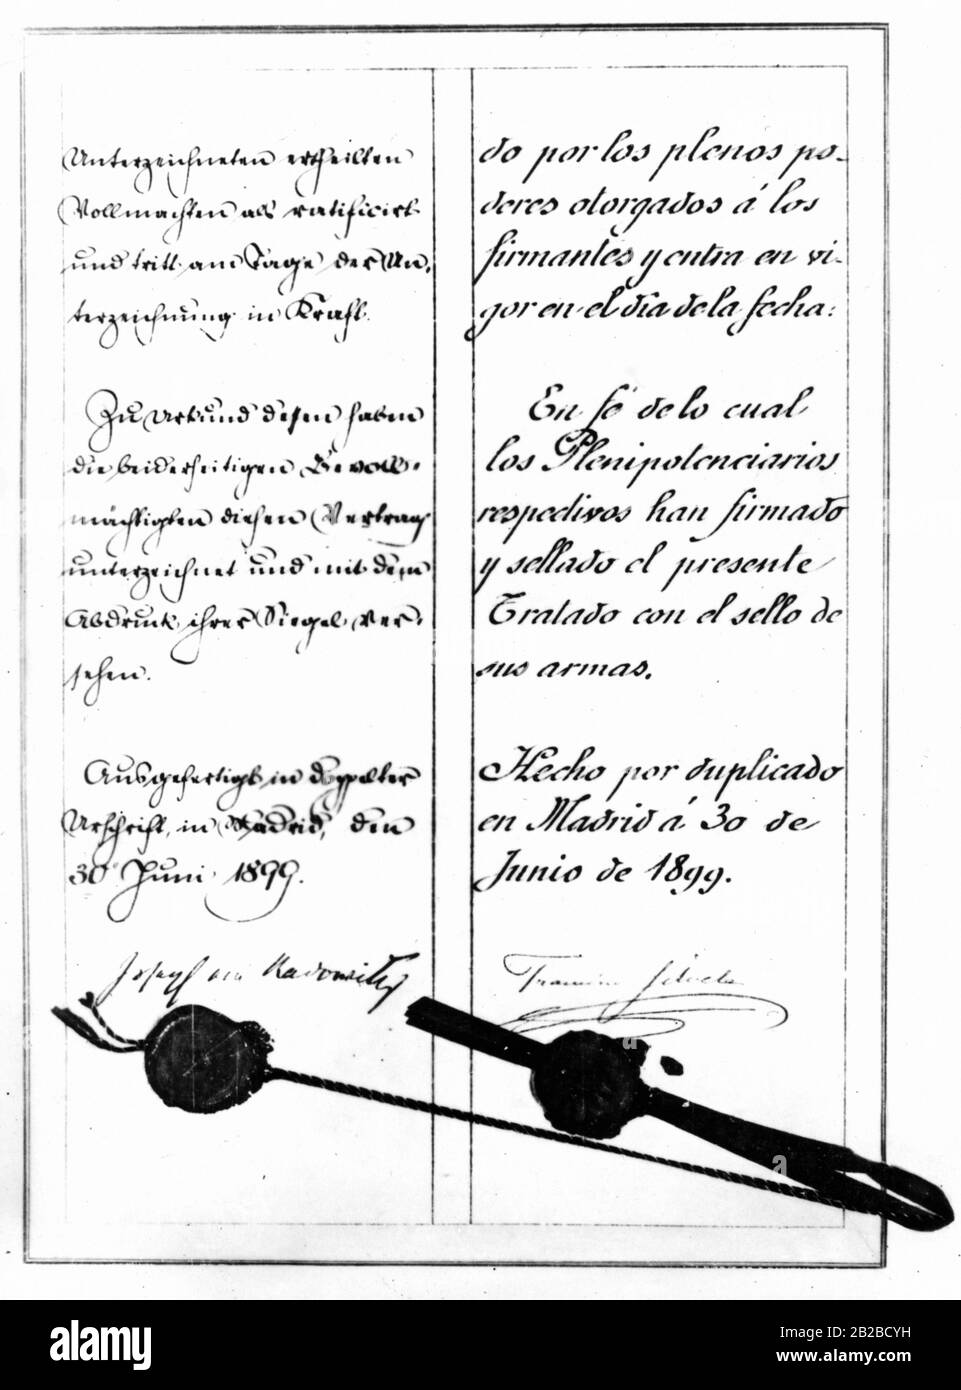 Unterzeichneten ertheilten
Vollmachten als ratificirt
und tritt am Tage der Un-
terzeichnung in Kraft.
Zu Urkund dessen haben
die beiderseitigen Bevoll-
mächtigten diesen Vertrag
unterzeichnet und mit dem
Abdruck ihrer Siegel ver-
sehen.
Ausgefertigt in doppelter
Urschrift, in Madrid, den
30 Juni 1899.
Joseph von Radowitz
do por los plenos po-
deres otorgados á los
firmantes y entra en vi-
gor en el día de la fecha:
En fé de lo cual
los Plenipotenciarios
respectivos han firmado
y sellado el presente
Tratado con el sello de
sus armas.
Hecho por duplicado
en Madrid á 30 de
Junio de 1899.
Francisco Silvela
a
a
alamy
Image ID: 2B2BCYH
www.alamy.com